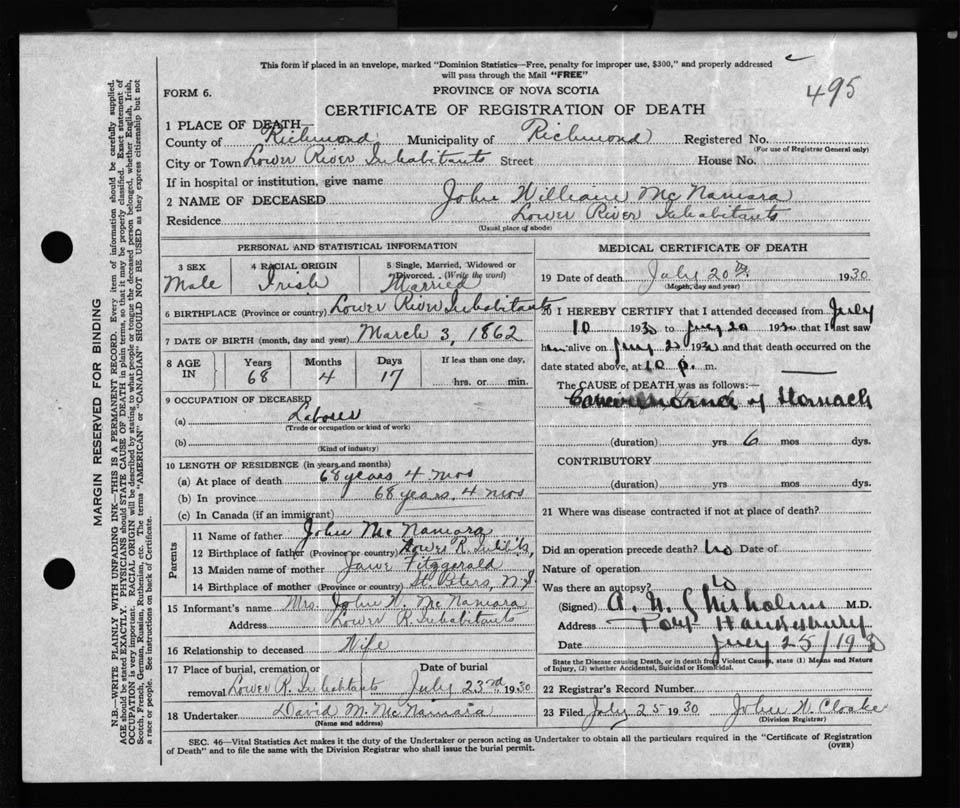 This form if placed in an envelope, marked "Dominion Statistics—Free, penalty for improper use, $300," and properly addressed
will pass through the Mail "FREE"
495
FORM 6.
PROVINCE OF NOVA SCOTIA
CERTIFICATE OF REGISTRATION OF DEATH
1 PLACE OF DEATH—
County of Richmond Municipality of Richmond Registered No.
(For use of Registrar General only)
City or Town Lower River Inhabitants Street House No.
If in hospital or institution, give name
2 NAME OF DECEASED John William McNamara
Residence Lower River Inhabitants
(Usual place of abode)
PERSONAL AND STATISTICAL INFORMATION
3 SEX 4 RACIAL ORIGIN 5 Single, Married, Widowed or
Divorced. (Write the word)
Male Irish Married
6 BIRTHPLACE (Province or country) Lower River Inhabitants
7 DATE OF BIRTH (month, day and year) March 3, 1862
8 AGE IN Years Months Days If less than one day,
68 4 17 hrs. or min.
9 OCCUPATION OF DECEASED
(a) Laborer
(Trade or occupation or kind of work)
(b)
(Kind of industry)
10 LENGTH OF RESIDENCE (in years and months)
(a) At place of death 68 years 4 mos
(b) In province 68 years, 4 mos
(c) In Canada (if an immigrant)
Parents
11 Name of father John McNamara
12 Birthplace of father (Province or country) Lower R. Inhbts,
13 Maiden name of mother Jane Fitzgerald
14 Birthplace of mother (Province or country) St. Peters, N.S.
15 Informant's name Mrs. John W. McNamara
Address Lower R. Inhabitants
16 Relationship to deceased Wife
17 Place of burial, cremation, or removal Lower R. Inhabitants Date of burial July 23rd, 1930
18 Undertaker David M. McNamara
(Name and address)
MEDICAL CERTIFICATE OF DEATH
19 Date of death July 20th 1930
(Month, day and year)
20 I HEREBY CERTIFY that I attended deceased from July
10 1930 to July 20 1930 that I last saw
him alive on July 1930 and that death occurred on the
date stated above, at 10 p. m.
The CAUSE OF DEATH was as follows:—
of Stomach
(duration) yrs 6 mos dys.
CONTRIBUTORY
(duration) yrs mos dys.
21 Where was disease contracted if not at place of death?
Did an operation precede death? No Date of
Nature of operation
Was there an autopsy? No
(Signed) A. N. Chisholm M.D.
Address Port Hawkesbury
Date July 25/1930
State the Disease causing Death, or in death from Violent Causes, state (1) Means and Nature
of Injury, (2) whether Accidental, Suicidal or Homicidal.
22 Registrar's Record Number
23 Filed July 25 1930 John
(Division Registrar)
SEC. 46—Vital Statistics Act makes it the duty of the Undertaker or person acting as Undertaker to obtain all the particulars required in the "Certificate of Registration
of Death" and to file the same with the Division Registrar who shall issue the burial permit.
(OVER)
MARGIN RESERVED FOR BINDING
N.B.—WRITE PLAINLY WITH UNFADING INK—THIS IS A PERMANENT RECORD. Every item of information should be carefully supplied.
AGE should be stated EXACTLY. PHYSICIANS should STATE CAUSE OF DEATH in plain terms, so that it may be properly classified. Exact statement of
OCCUPATION is very important. RACIAL ORIGIN will be described by stating to what people or tongue the deceased person belonged, whether English, Irish,
Scotch, French, German, Russian, Ruthenian, etc. The terms "AMERICAN" or "CANADIAN" SHOULD NOT BE USED as they express citizenship but not
a race or people. See instructions on back of Certificate.